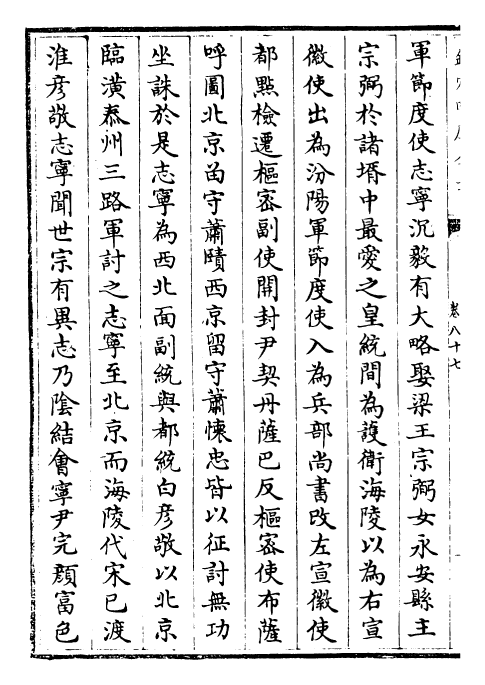 卷八十七
軍節度使志寧沉毅有大略娶梁王宗弼女永安縣主
宗弼於諸壻中最愛之皇統間為護衛海陵以為右宣
徽使出為汾陽軍節度使入為兵部尚書改左宣徽使
都點檢遷樞密副使開封尹契丹薩巴反樞密使布薩
呼圖北京留守蕭賾西京留守蕭懷忠皆以征討無功
坐誅於是志寧為西北面副統與都統白彦敬以北京
臨潢泰州三路軍討之志寧至北京而海陵代宋已渡
淮彦敬志寧聞世宗有異志乃陰結會寧尹完顔富色